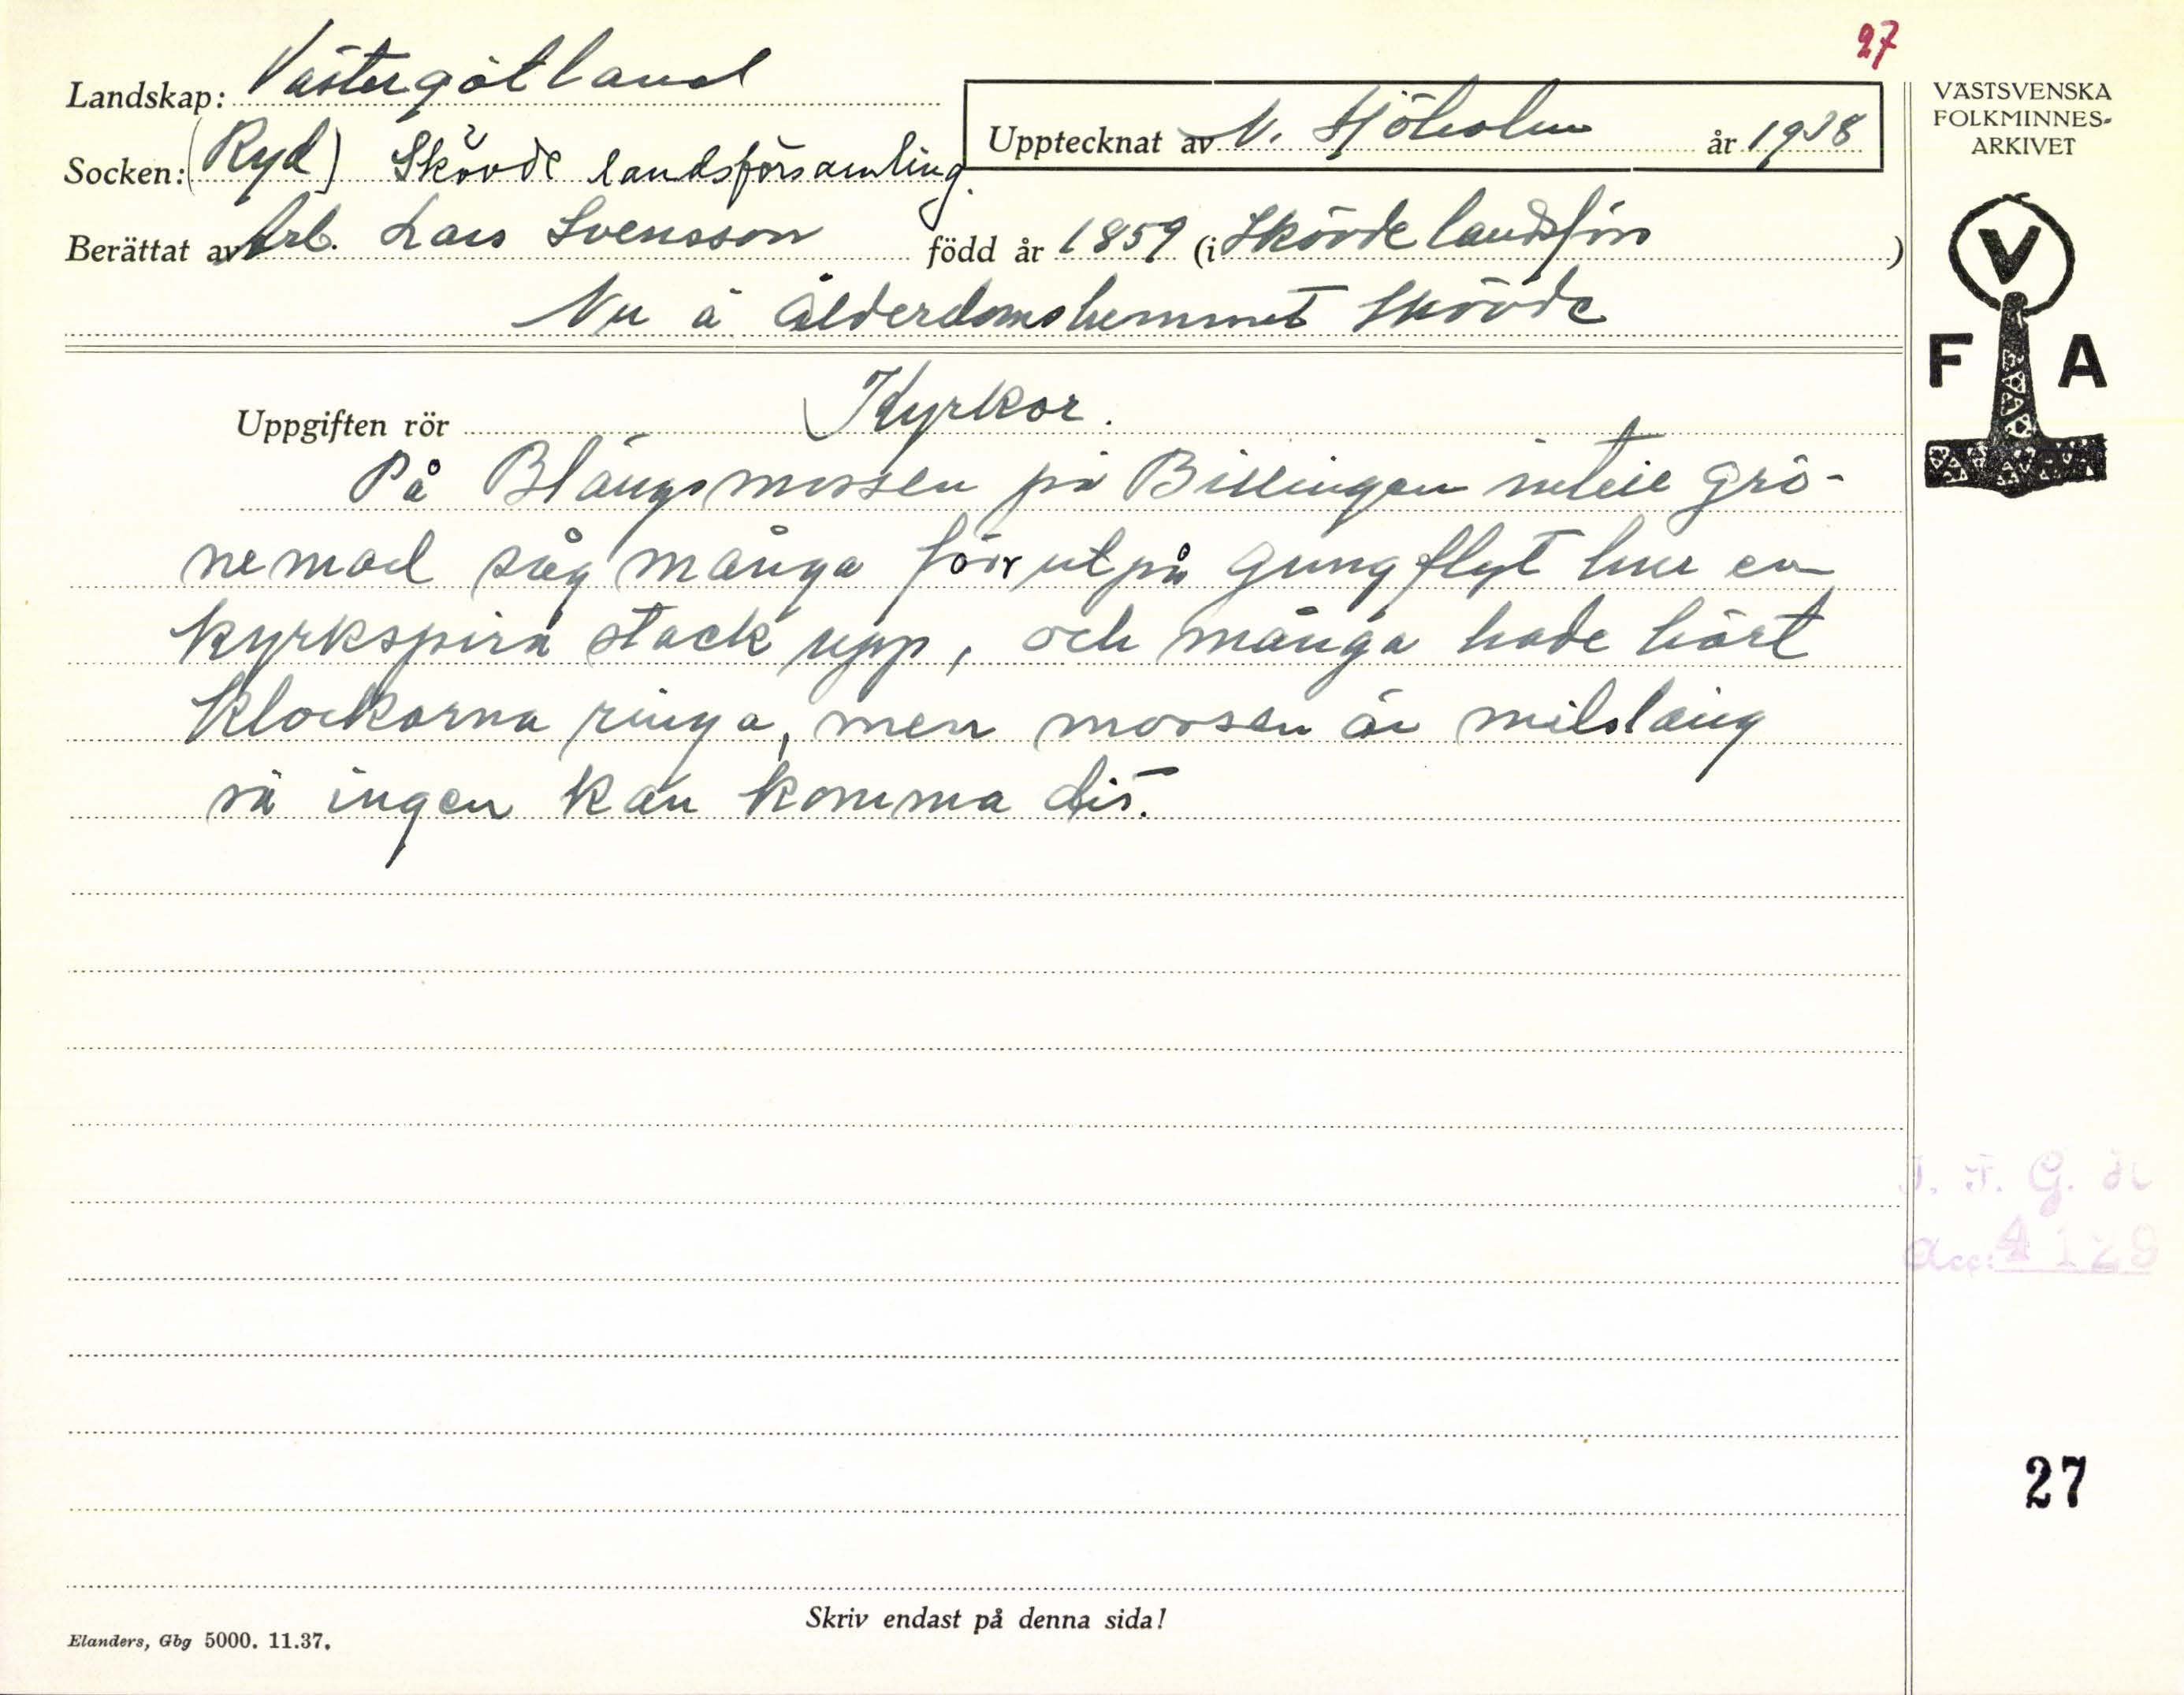 27
Landskap: Västergötland
Upptecknat av N. Sjöholm år 1938
Socken: (Ryd) Skövde landsförsamling
Berättat av Arb. Lars Svensson född år 1859 (i Skövde landsförs )
Nu å ålderdomshemmet Skövde
Uppgiften rör Kyrkor.
På Blängsmossen på Billingen intill Grö-
nemad såg många förr ut på gungflyt hur en
kyrkspira stack upp, och många hade hört
klockorna ringa, men mossen är milslång
så ingen kan komma dit.
VÄSTSVENSKA
FOLKMINNES-
ARKIVET
V
F A
I. F. G. H
Acc: 4129
27
Skriv endast på denna sida!
Elanders, Gbg 5000. 11.37.